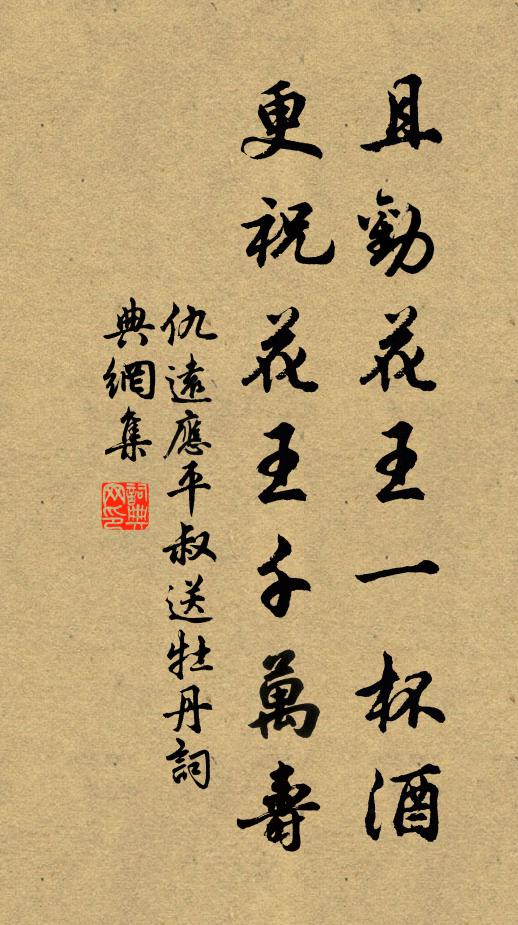 且勸花王一杯酒
更祝花王千萬壽
仇遠應平叔送牡丹詞
典網集
詞典
网印